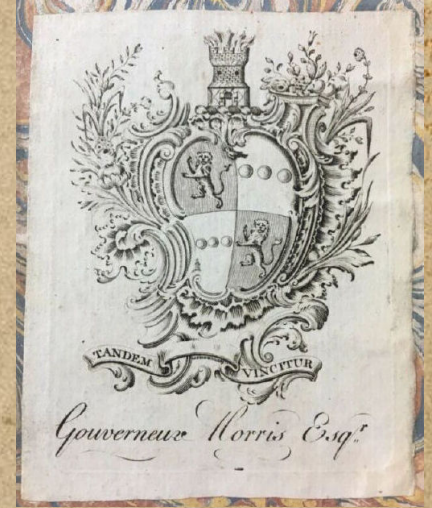 TANDEM VINCITUR
Gouverneur Morris Esqr.